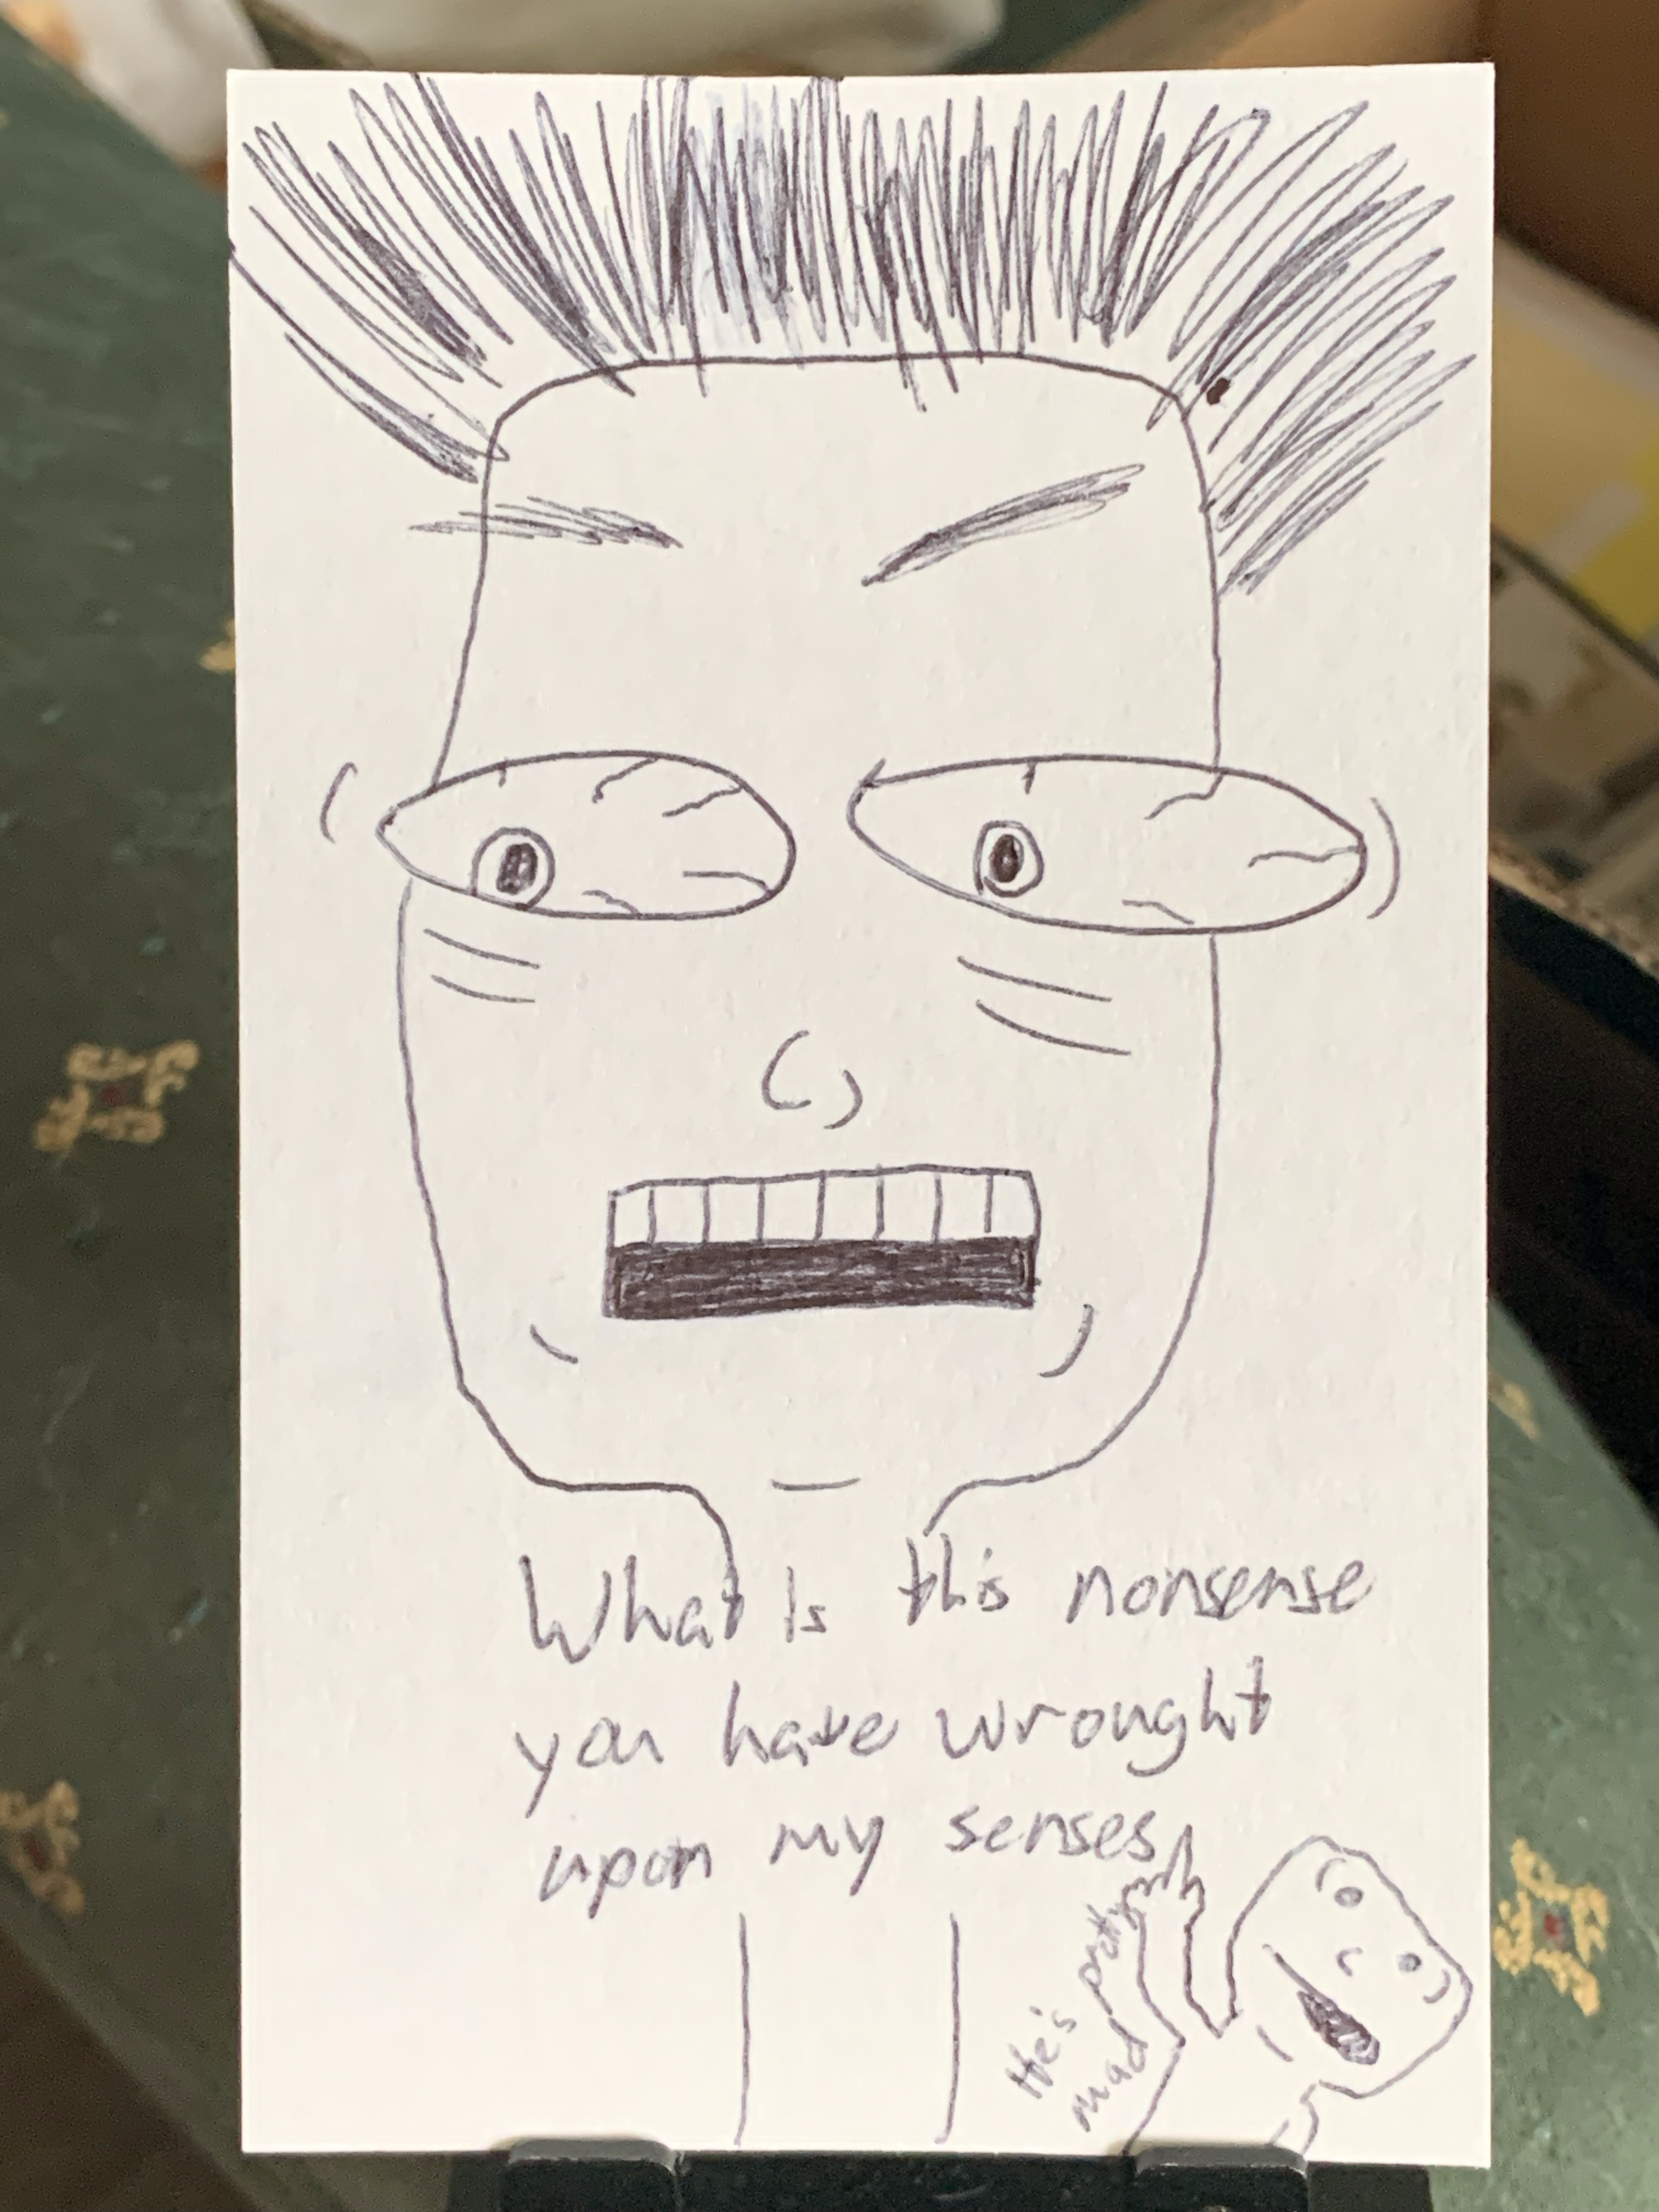 What Is this nonsense
you have wrought
upon my senses
He's pretty
mad